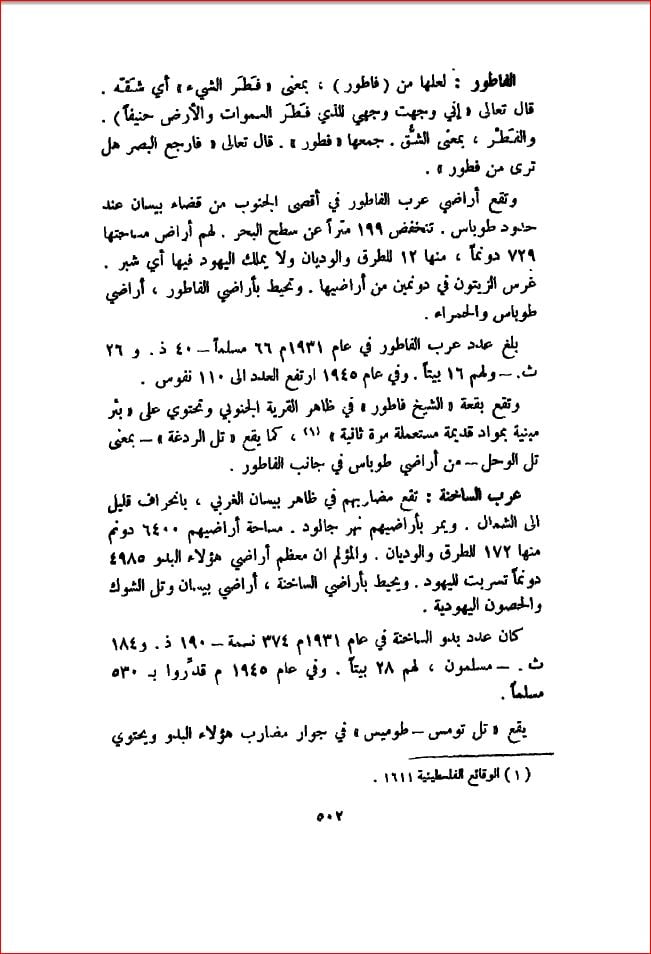 الفاطور : لعلها من (فاطور) ، بمعنى «فَطَرَ الشيء» أي شَقّه .
قال تعالى «إني وجهت وجهي للذي فَطَرَ السموات والأرض حنيفاً) .
والفَطْر ، بمعنى الشُّق . جمعها «فطور» . قال تعالى «فارجع البصر هل
ترى من فطور» .
وتقع أراضي عرب الفاطور في أقصى الجنوب من قضاء بيسان عند
حدود طوباس . تنخفض ١٩٩ متراً عن سطح البحر . لهم أراض مساحتها
٧٢٩ دونماً ، منها ١٢ للطرق والوديان ولا يملك اليهود فيها أي شبر .
غرس الزيتون في دونمين من أراضيها . وتحيط بأراضي الفاطور ، أراضي
طوباس والحمراء .
بلغ عدد عرب الفاطور في عام ١٩٣١م ٦٦ مسلماً – ٤٠ ذ. و ٢٦
ث. – ولهم ١٦ بيتاً . وفي عام ١٩٤٥ ارتفع العدد الى ١١٠ نفوس .
وتقع بقعة «الشيخ فاطور» في ظاهر القرية الجنوبي وتحتوي على «بئر
مبنية بمواد قديمة مستعملة مرة ثانية» (١) ، كما يقع «تل الردغة» – بمعنى
تل الوحل – من أراضي طوباس في جانب الفاطور .
عرب الساخنة : تقع مضاربهم في ظاهر بيسان الغربي ، بانحراف قليل
الى الشمال . ويمر بأراضيهم نهر جالود . مساحة أراضيهم ٦٤٠٠ دونم
منها ١٧٢ للطرق والوديان . والمؤلم ان معظم أراضي هؤلاء البدو ٤٩٨٥
دونماً تسربت لليهود . ويحيط بأراضي الساخنة ، أراضي بيسان وتل الشوك
والحصون اليهودية .
كان عدد بدو الساخنة في عام ١٩٣١م ٣٧٤ نسمة – ١٩٠ ذ. و١٨٤
ث . – مسلمون ، لهم ٢٨ بيتاً . وفي عام ١٩٤٥ م قدَّروا بـ ٥٣٠
مسلماً .
يقع «تل تومس – طوميس» في جوار مضارب هؤلاء البدو ويحتوي
(١) الوقائع الفلسطينية ١٦١١ .
٥٠٢